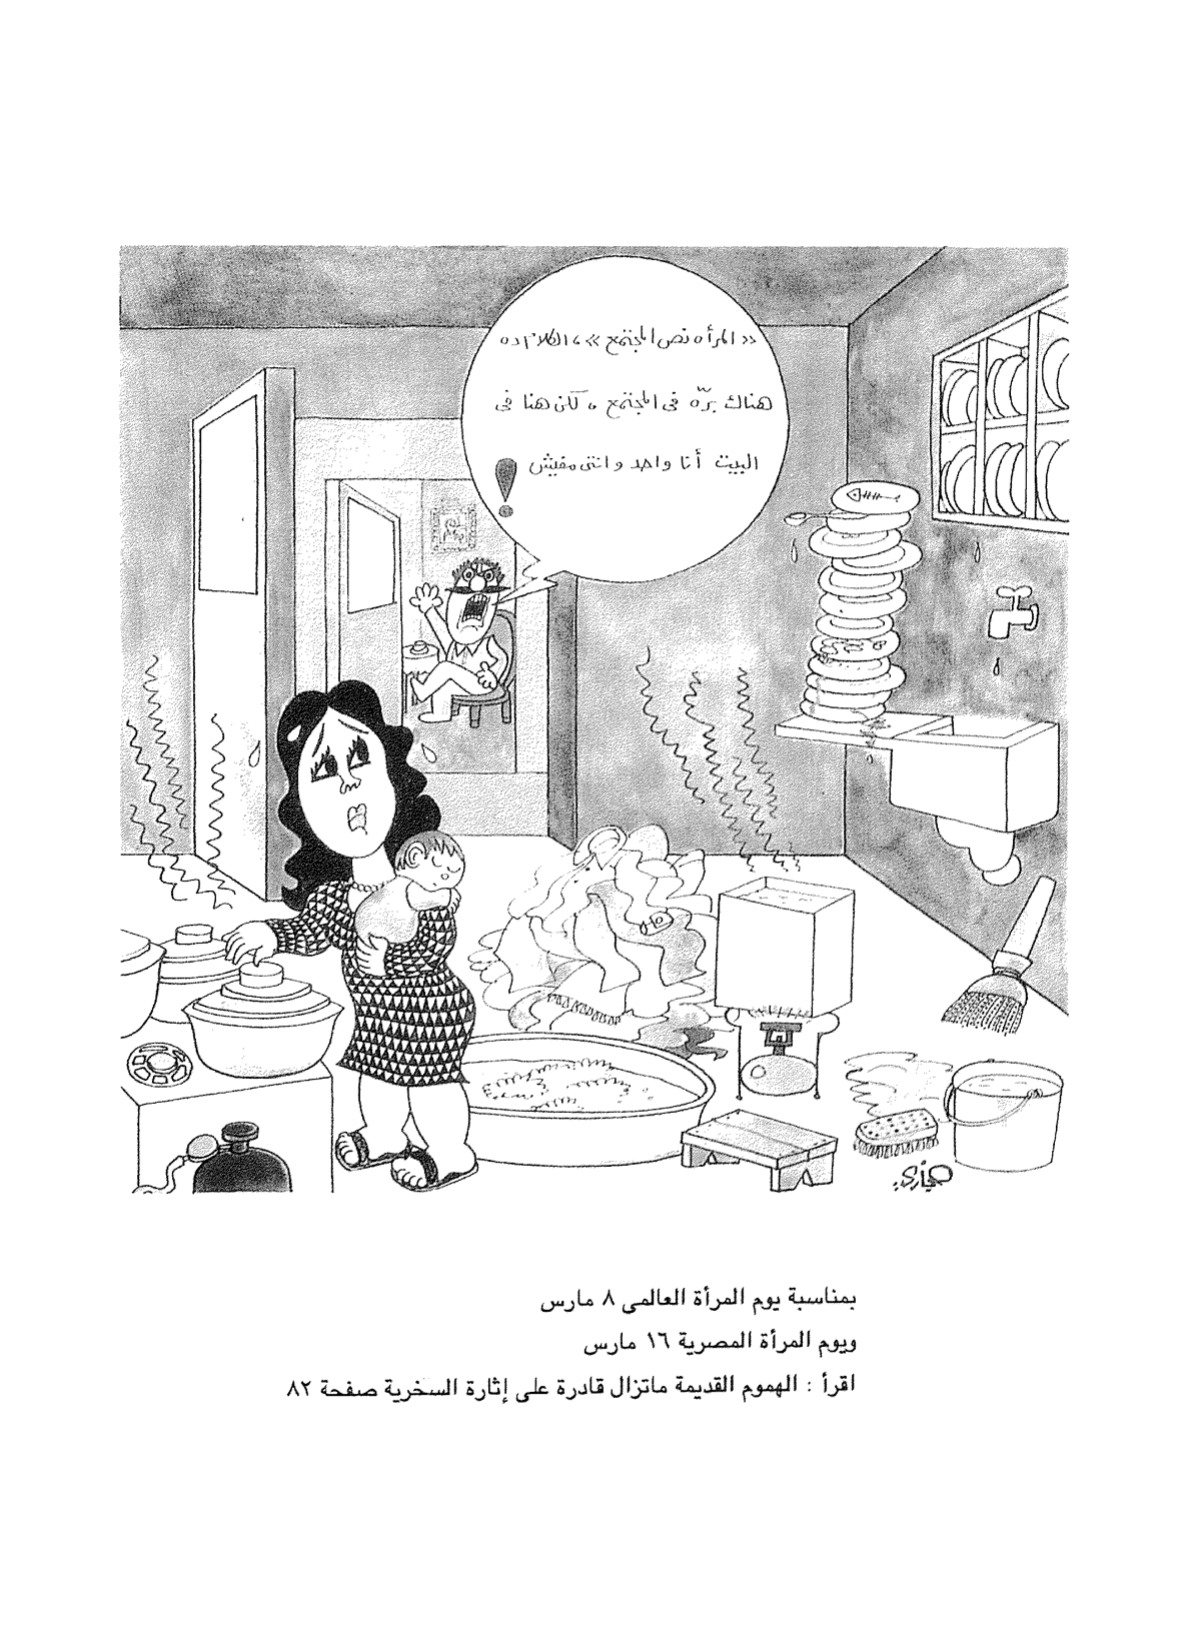 «المرأه نص المجتمع»، الكلام ده
هناك برّه فى المجتمع، لكن هنا فى
البيت أنا واحد وانتى مفيش !
حجازى
بمناسبة يوم المرأة العالمى ٨ مارس
ويوم المرأة المصرية ١٦ مارس
اقرأ : الهموم القديمة ماتزال قادرة على إثارة السخرية صفحة ٨٢